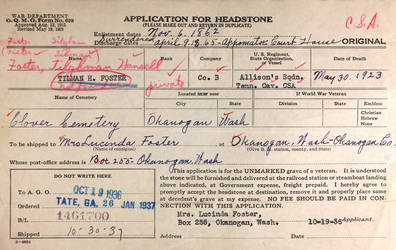 WAR DEPARTMENT
O. Q. M. G. Form No. 623
Approved Aug. 12, 1915
APPLICATION FOR HEADSTONE
(PLEASE MAKE OUT AND RETURN IN DUPLICATE)
C.S.A
Enlistment dates Nov. 6, 1862
Discharge dates April 9, 1865 - Appomatox Court House ORIGINAL
Surrendered
Foster, Tilghman
Name
Rank
Company
U. S. Regiment, State Organization, and Vessel
Date of Death
TILMAN H. FOSTER
private
Co. B
Allison's Sqdn.
Tenn. Cav. CSA
May 30, 1923
Name of Cemetery
Located in or near
If World War Veteran
Clover Cemetery
Okanogan Wash
Christian
Hebrew
None
To be shipped to Mrs Lucinda Foster at Okanogan, Wash - Okanogan Co.
Whose post-office address is Box 255 - Okanogan, Wash
DO NOT WRITE HERE
This application is for the UNMARKED grave of a veteran. It is understood
the stone will be furnished and delivered at the railroad station or steamboat landing
above indicated, at Government expense, freight prepaid. I hereby agree to
promptly accept the headstone at destination, remove it and properly place same
at decedent's grave at my expense. NO FEE SHOULD BE PAID IN CONNECTION
WITH THIS APPLICATION.
To A. G. O. OCT 19 1936
Ordered TATE, GA. 26 JAN 1937
B/L 1461700
Shipped 10-30-37
Mrs. Lucinda Foster,
Box 255, Okanogan, Wash.
10-19-36
Applicant.